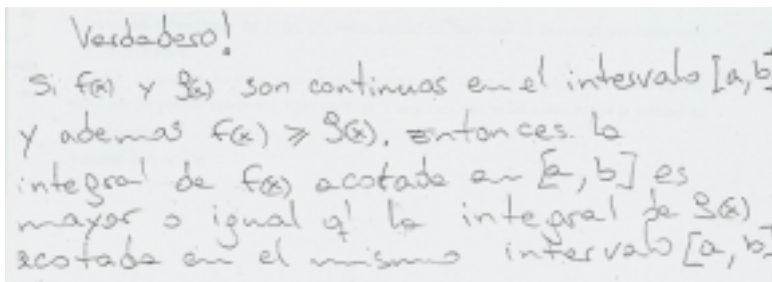 Verdadero!
Si f(x) y g(x) son continuas en el intervalo [a,b]
y ademas f(x) ≥ g(x), entonces la
integral de f(x) acotada en [a,b] es
mayor o igual q' la integral de g(x)
acotada en el mismo intervalo [a,b]